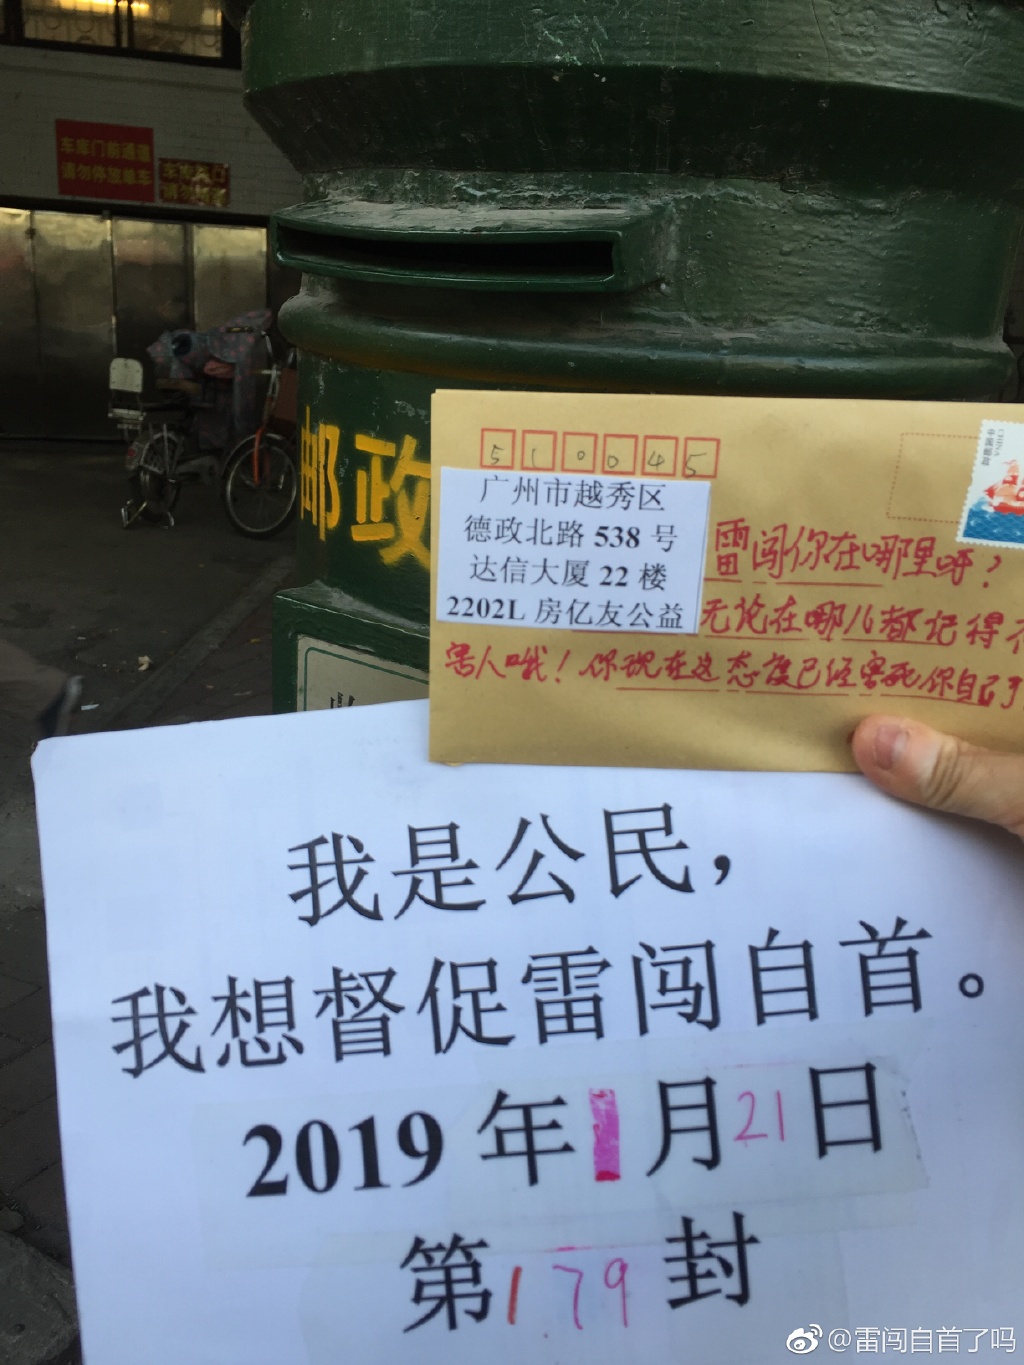 车库门前通道
请勿停放单车
邮政
510045
广州市越秀区
德政北路 538 号
达信大厦 22 楼
2202L 房亿友公益
中国邮政
CHINA
雷闯你在哪里呀?
无论在哪儿都记得不
害人哦!你现在这态度已经害死你自己了
我是公民,
我想督促雷闯自首。
2019 年 1 月 21 日
第 179 封
@雷闯自首了吗